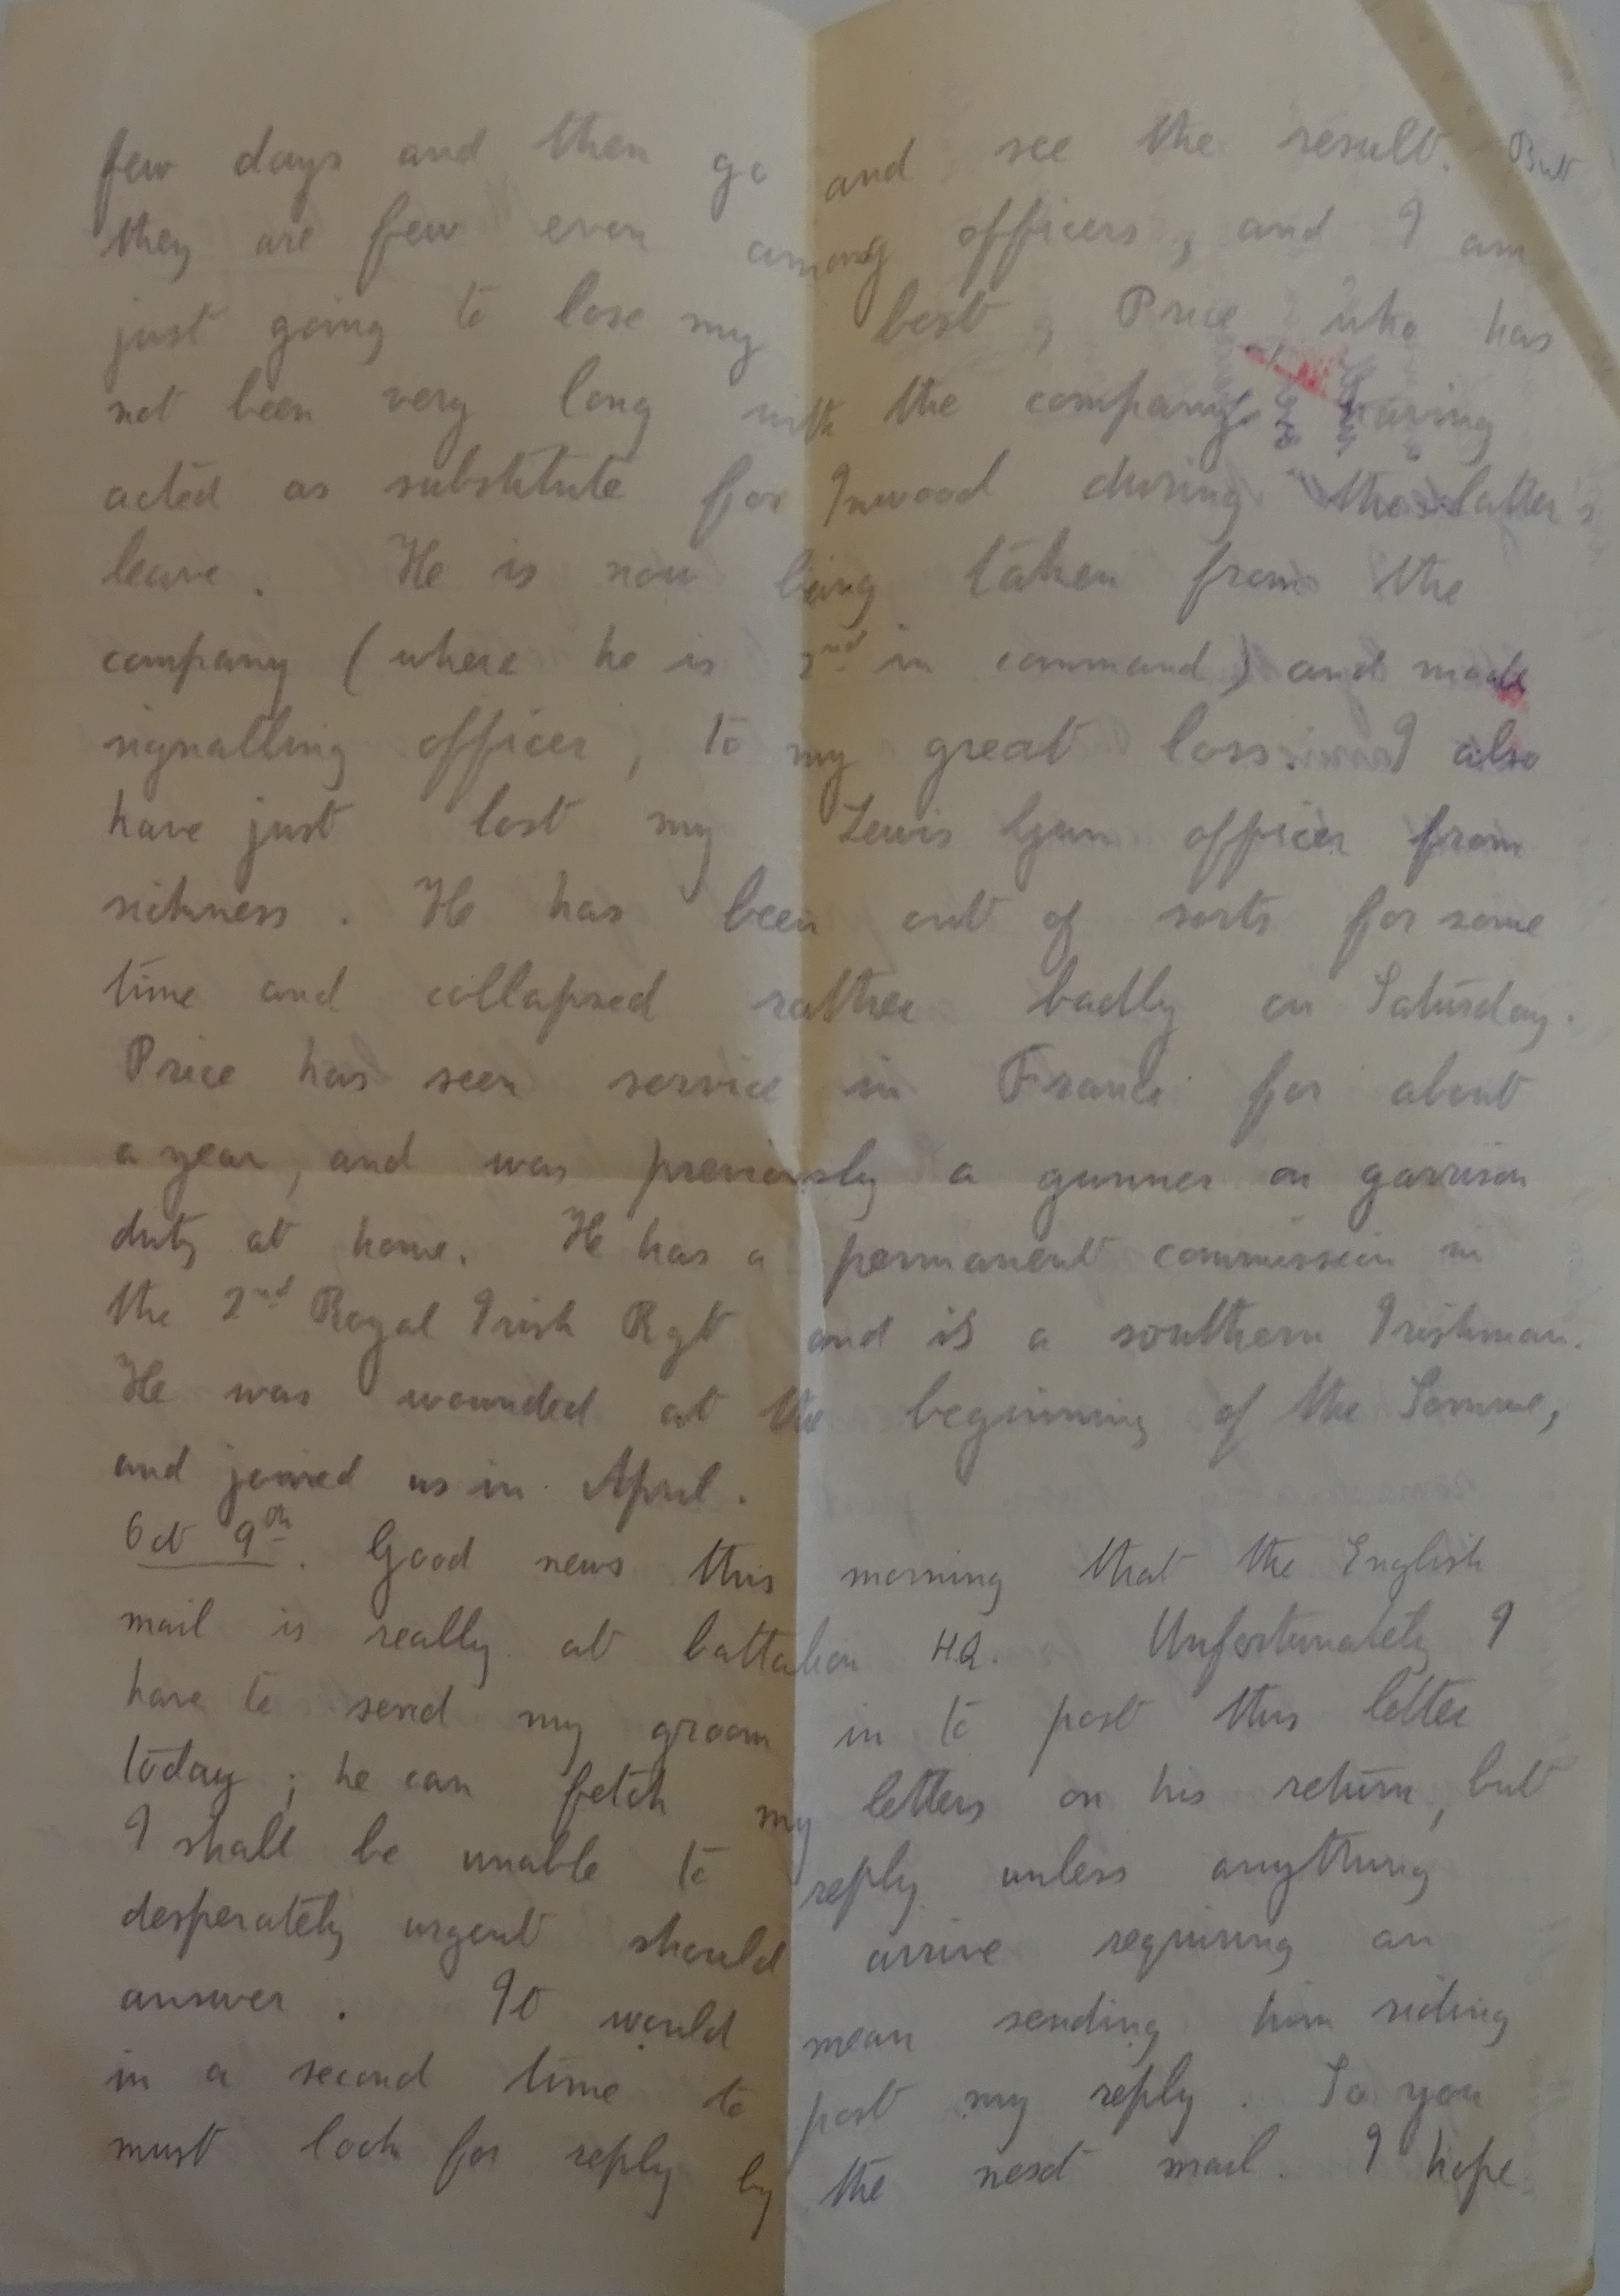 few days and then go and see the result. But
they are few even among officers, and I am
just going to lose my best, Price, who has
not been very long with the company, having
acted as substitute for Inwood during the latter's
leave. He is now being taken from the
company (where he is 2nd in command) and made
signalling officer, to my great loss. I also
have just lost my Lewis Gun officer from
sickness. He has been out of sorts for some
time and collapsed rather badly on Saturday.
Price has seen service in France for about
a year, and was previously a gunner on garrison
duty at home. He has a permanent commission in
the 2nd Royal Irish Rgt and is a southern Irishman.
He was wounded at the beginning of the Somme,
and joined us in April.
Oct 9th. Good news this morning that the English
mail is really at battalion H.Q. Unfortunately I
have to send my groom in to post this letter
today; he can fetch my letters on his return, but
I shall be unable to reply unless anything
desperately urgent should arrive requiring an
answer. It would mean sending him riding
in a second time to post my reply. So you
must look for reply by the next mail. I hope